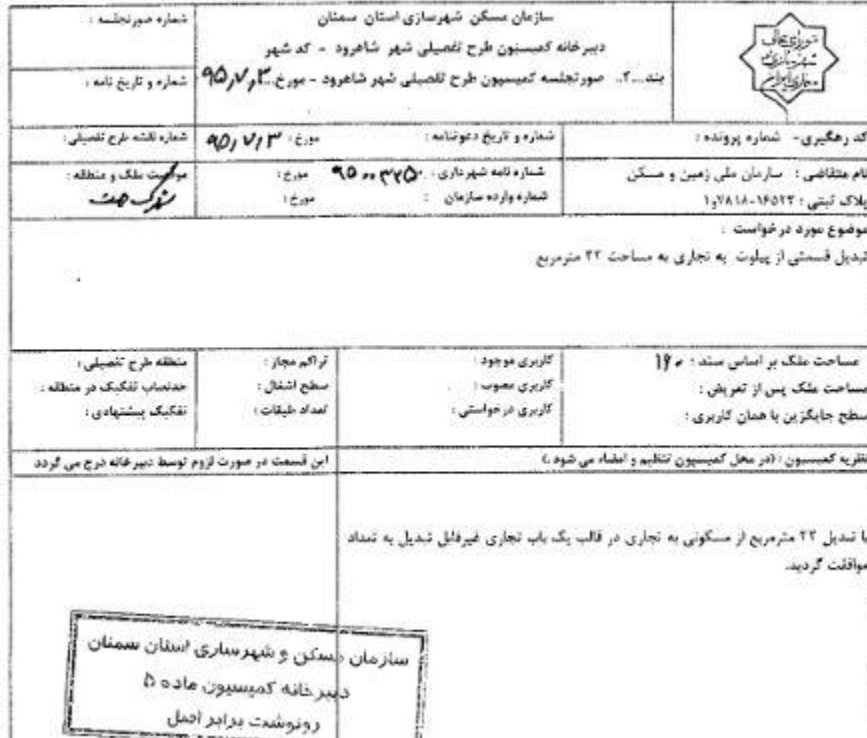 سازمان مسکن شهرسازی استان سمنان
دبیرخانه کمیسیون طرح تفصیلی شهر شاهرود - کد شهر
بند...۲.. صورتجلسه کمیسیون طرح تفصیلی شهر شاهرود - مورخ ۹۵/۷/۳
شماره صورتجلسه :
شماره و تاریخ نامه :
شورای عالی
شهرسازی و
معماری ایران
کد رهگیری- شماره پرونده :
شماره و تاریخ دعوتنامه : مورخ : ۹۵/۷/۳
شماره نقشه طرح تفصیلی :
نام متقاضی : سازمان ملی زمین و مسکن
پلاک ثبتی : ۱۶۵۲۳-۷۸۱۸و۱
شماره نامه شهرداری : ۹۵۰۰۳۲۵ مورخ :
شماره وارده سازمان : مورخ :
موقعیت ملک و منطقه :
شهرک
موضوع مورد درخواست :
تبدیل قسمتی از پیلوت به تجاری به مساحت ۲۲ مترمربع
مساحت ملک بر اساس سند : ۱۶۰
مساحت ملک پس از تعریض :
سطح جایگزین با همان کاربری :
کاربری موجود :
کاربری مصوب :
کاربری درخواستی :
تراکم مجاز :
سطح اشغال :
تعداد طبقات :
منطقه طرح تفصیلی :
حدنصاب تفکیک در منطقه :
تفکیک پیشنهادی :
نظریه کمیسیون : (در محل کمیسیون تنظیم و امضاء می شود.)
این قسمت در صورت لزوم توسط دبیرخانه درج می گردد
با تبدیل ۲۲ مترمربع از مسکونی به تجاری در قالب یک باب تجاری غیرقابل تبدیل به تعداد
موافقت گردید.
سازمان مسکن و شهرسازی استان سمنان
دبیرخانه کمیسیون ماده ۵
رونوشت برابر اصل